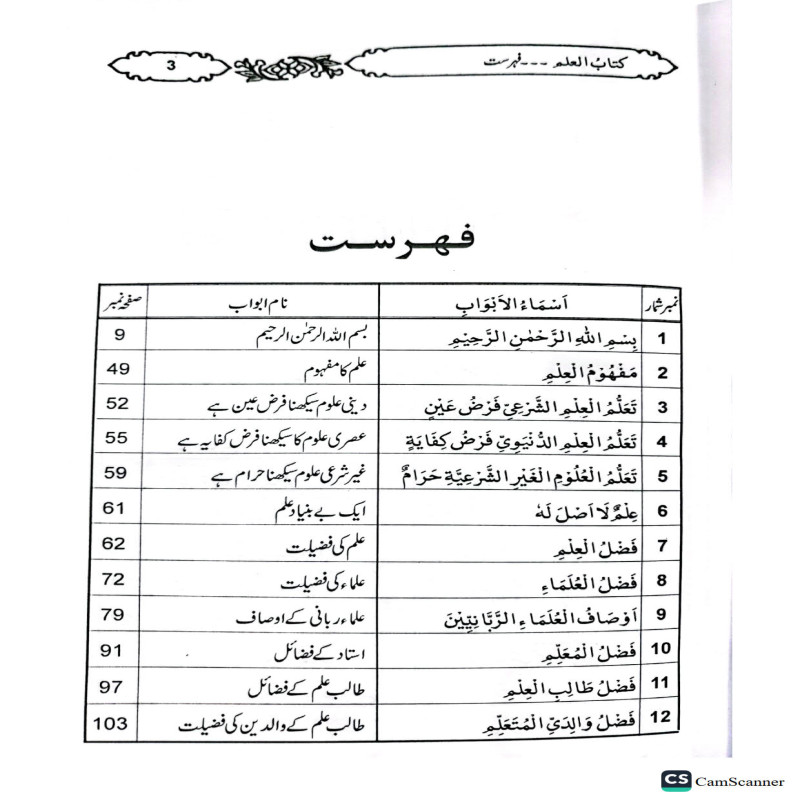 کتابُ العلم ---فہرست 3
فہرست
نمبر شمار اَسْمَاءُ الْاَبْوَابِ نام ابواب صفحہ نمبر
1 بِسْمِ اللهِ الرَّحْمٰنِ الرَّحِيْمِ بسم اللہ الرحمٰن الرحیم 9
2 مَفْهُوْمُ الْعِلْمِ علم کا مفہوم 49
3 تَعَلُّمُ الْعِلْمِ الشَّرْعِيِّ فَرْضُ عَيْنٍ دینی علوم سیکھنا فرض عین ہے 52
4 تَعَلُّمُ الْعِلْمِ الدُّنْيَوِيِّ فَرْضُ كِفَايَةٍ عصری علوم کا سیکھنا فرض کفایہ ہے 55
5 تَعَلُّمُ الْعُلُوْمِ الْغَيْرِ الشَّرْعِيَّةِ حَرَامٌ غیر شرعی علوم سیکھنا حرام ہے 59
6 عِلْمٌ لَا اَصْلَ لَهُ ایک بے بنیاد علم 61
7 فَضْلُ الْعِلْمِ علم کی فضیلت 62
8 فَضْلُ الْعُلَمَاءِ علماء کی فضیلت 72
9 اَوْصَافُ الْعُلَمَاءِ الرَّبَّانِيِّيْنَ علماء ربانی کے اوصاف 79
10 فَضْلُ الْمُعَلِّمِ استاد کے فضائل 91
11 فَضْلُ طَالِبِ الْعِلْمِ طالب علم کے فضائل 97
12 فَضْلُ وَالِدَيِ الْمُتَعَلِّمِ طالب علم کے والدین کی فضیلت 103
CS CamScanner